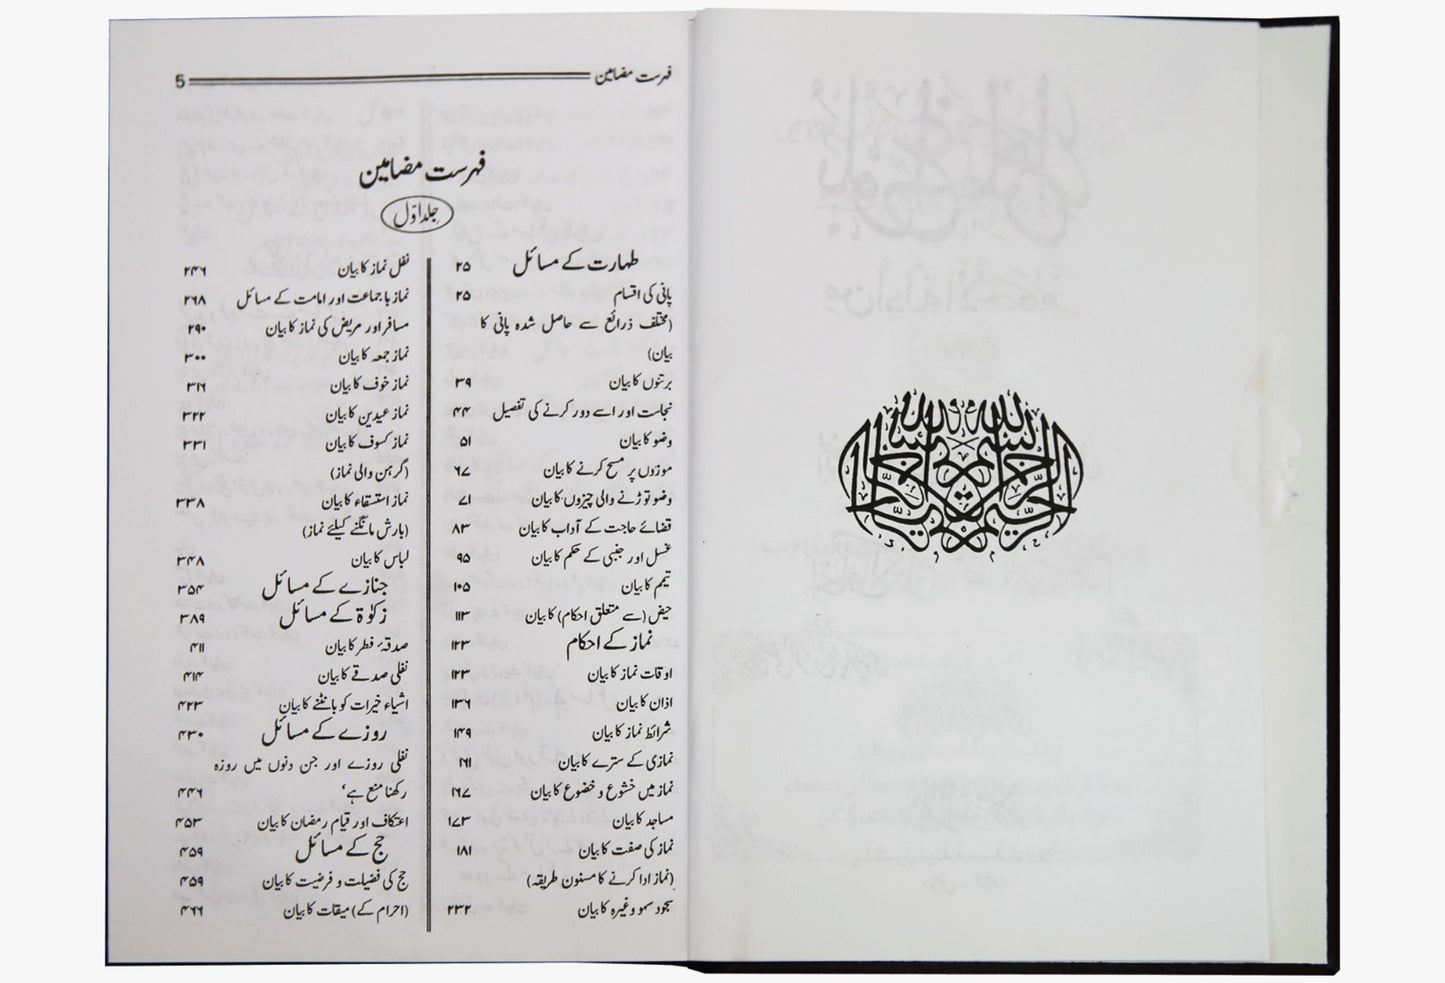 فہرست مضامین 5
فہرست مضامین
جلد اوّل
طہارت کے مسائل ۲۵
پانی کی اقسام ۲۵
(مختلف ذرائع سے حاصل شدہ پانی کا
بیان)
برتنوں کا بیان ۳۹
نجاست اور اسے دور کرنے کی تفصیل ۴۴
وضو کا بیان ۵۱
موزوں پر مسح کرنے کا بیان ۶۷
وضو توڑنے والی چیزوں کا بیان ۷۱
قضائے حاجت کے آداب کا بیان ۸۳
غسل اور جنبی کے حکم کا بیان ۹۵
تیمم کا بیان ۱۰۵
حیض (سے متعلق احکام) کا بیان ۱۱۳
نماز کے احکام ۱۲۳
اوقات نماز کا بیان ۱۲۳
اذان کا بیان ۱۳۶
شرائط نماز کا بیان ۱۴۹
نمازی کے سترے کا بیان ۱۶۱
نماز میں خشوع و خضوع کا بیان ۱۶۷
مساجد کا بیان ۱۷۳
نماز کی صفت کا بیان ۱۸۱
(نماز ادا کرنے کا مسنون طریقہ)
سجود سہو وغیرہ کا بیان ۲۳۲
نفل نماز کا بیان ۲۴۶
نماز باجماعت اور امامت کے مسائل ۲۶۸
مسافر اور مریض کی نماز کا بیان ۲۹۰
نماز جمعہ کا بیان ۳۰۰
نماز خوف کا بیان ۳۱۶
نماز عیدین کا بیان ۳۲۲
نماز کسوف کا بیان ۳۳۱
(گرہن والی نماز)
نماز استسقاء کا بیان ۳۳۸
(بارش مانگنے کیلئے نماز)
لباس کا بیان ۳۴۸
جنازے کے مسائل ۳۵۴
زکوٰۃ کے مسائل ۳۸۹
صدقۂ فطر کا بیان ۴۱۱
نفلی صدقے کا بیان ۴۱۴
اشیاء خیرات کو بانٹنے کا بیان ۴۲۳
روزے کے مسائل ۴۳۰
نفلی روزے اور جن دنوں میں روزہ
رکھنا منع ہے' ۴۴۶
اعتکاف اور قیام رمضان کا بیان ۴۵۳
حج کے مسائل ۴۵۹
حج کی فضیلت و فرضیت کا بیان ۴۵۹
(احرام کے) میقات کا بیان ۴۶۶
بسم الله الرحمن الرحيم